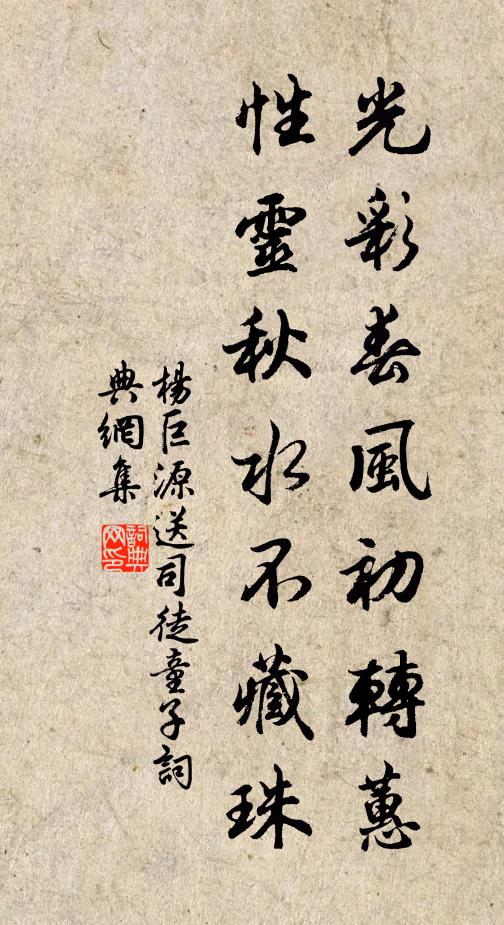 光彩春風初轉蕙
性靈秋水不藏珠
楊巨源送司徒童子詞
典網集
詞典網印